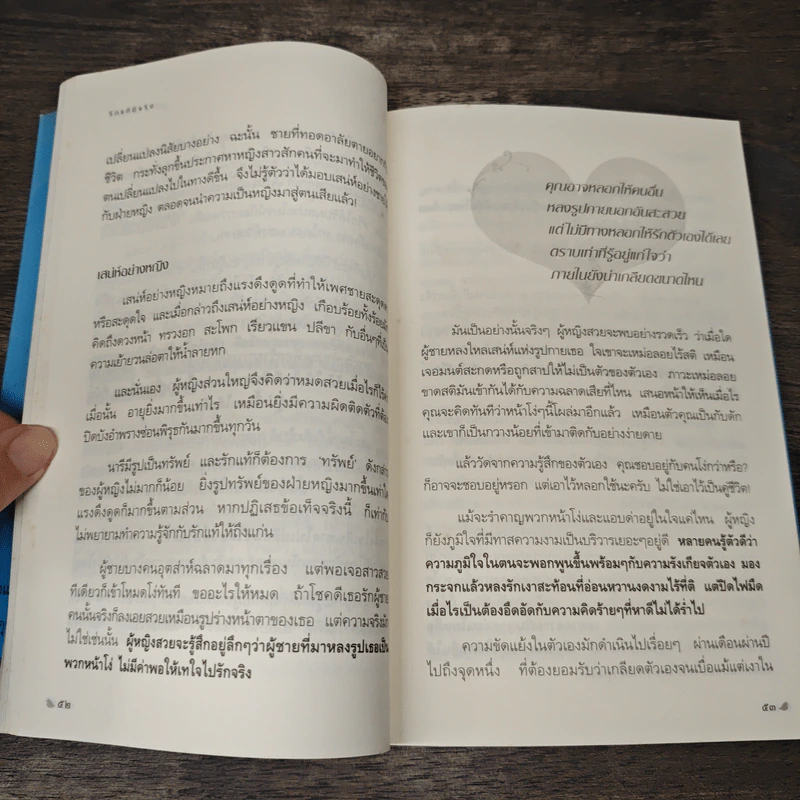 รักแท้มีจริง
เปลี่ยนแปลงนิสัยบางอย่าง ฉะนั้น ชายที่ทอดอาลัยตายอยากกับ
ชีวิต กระทั่งลุกขึ้นประกาศหาหญิงสาวสักคนที่จะมาทำให้ชีวิต
ตนเปลี่ยนแปลงไปในทางดีขึ้น จึงไม่รู้ตัวว่าได้มอบเสน่ห์อย่างชาย
กับฝ่ายหญิง ตลอดจนนำความเป็นหญิงมาสู่ตนเสียแล้ว!
เสน่ห์อย่างหญิง
เสน่ห์อย่างหญิงหมายถึงแรงดึงดูดที่ทำให้เพศชายสะดุดตา
หรือสะดุดใจ และเมื่อกล่าวถึงเสน่ห์อย่างหญิง เกือบร้อยทั้งร้อย
คิดถึงดวงหน้า ทรวงอก สะโพก เรียวแขน ปลีขา กับอื่นๆที่
ความเย้ายวนล่อตาให้น้ำลายหก
และนั่นเอง ผู้หญิงส่วนใหญ่จึงคิดว่าหมดสวยเมื่อไรก็ไร้
เมื่อนั้น อายุยิ่งมากขึ้นเท่าไร เหมือนยิ่งมีความผิดติดตัวที่ต้อง
ปิดบังอำพรางซ่อนพิรุธกันมากขึ้นทุกวัน
นารีมีรูปเป็นทรัพย์ และรักแท้ก็ต้องการ ‘ทรัพย์’ ดังกล่าว
ของผู้หญิงไม่มากก็น้อย ยิ่งรูปทรัพย์ของฝ่ายหญิงมากขึ้นเท่าใด
แรงดึงดูดก็มากขึ้นตามส่วน หากปฏิเสธข้อเท็จจริงนี้ ก็เท่ากับ
ไม่พยายามทำความรู้จักกับรักแท้ให้ถึงแก่น
ผู้ชายบางคนอุตส่าห์ฉลาดมาทุกเรื่อง แต่พอเจอสาวสวย
ทีเดียวก็เข้าโหมดโง่ทันที ขออะไรให้หมด ถ้าโชคดีเธอรักผู้ชาย
คนนั้นจริงก็ลงเอยสวยเหมือนรูปร่างหน้าตาของเธอ แต่ความจริงมัก
ไม่ใช่เช่นนั้น ผู้หญิงสวยจะรู้สึกอยู่ลึกๆว่าผู้ชายที่มาหลงรูปเธอเป็น
พวกหน้าโง่ ไม่มีค่าพอให้เทใจไปรักจริง
๕๒
คุณอาจหลอกให้คนอื่น
หลงรูปกายนอกอันสะสวย
แต่ไม่มีทางหลอกให้รักตัวเองได้เลย
ตราบเท่าที่รู้อยู่แก่ใจว่า
ภายในยังน่าเกลียดขนาดไหน
มันเป็นอย่างนั้นจริงๆ ผู้หญิงสวยจะพบอย่างรวดเร็ว ว่าเมื่อใด
ผู้ชายหลงใหลเสน่ห์แห่งรูปกายเธอ ใจเขาจะเหม่อลอยไร้สติ เหมือน
เจอมนต์สะกดหรือถูกสาปให้ไม่เป็นตัวของตัวเอง ภาวะเหม่อลอย
ขาดสติมันเข้ากันได้กับความฉลาดเสียที่ไหน เสนอหน้าให้เห็นเมื่อไร
คุณจะคิดทันทีว่าหน้าโง่ๆนี้โผล่มาอีกแล้ว เหมือนตัวคุณเป็นกับดัก
และเขาก็เป็นกวางน้อยที่เข้ามาติดกับอย่างง่ายดาย
แล้ววัดจากความรู้สึกของตัวเอง คุณชอบอยู่กับคนโง่กว่าหรือ?
ก็อาจจะชอบอยู่หรอก แต่เอาไว้หลอกใช้นะครับ ไม่ใช่เอาไว้เป็นคู่ชีวิต!
แม้จะรำคาญพวกหน้าโง่และแอบด่าอยู่ในใจแค่ไหน ผู้หญิง
ก็ยังภูมิใจที่มีทาสความงามเป็นบริวารเยอะๆอยู่ดี หลายคนรู้ตัวดีว่า
ความภูมิใจในตนจะพอกพูนขึ้นพร้อมๆกับความรังเกียจตัวเอง มอง
กระจกแล้วหลงรักเงาสะท้อนที่อ่อนหวานงดงามไร้ที่ติ แต่ปิดไฟมืด
เมื่อไรเป็นต้องอึดอัดกับความคิดร้ายๆที่หาดีไม่ได้ร่ำไป
ความขัดแย้งในตัวเองมักดำเนินไปเรื่อยๆ ผ่านเดือนผ่านปี
ไปถึงจุดหนึ่ง ที่ต้องยอมรับว่าเกลียดตัวเองจนเบื่อแม้แต่เงาใน
๕๓